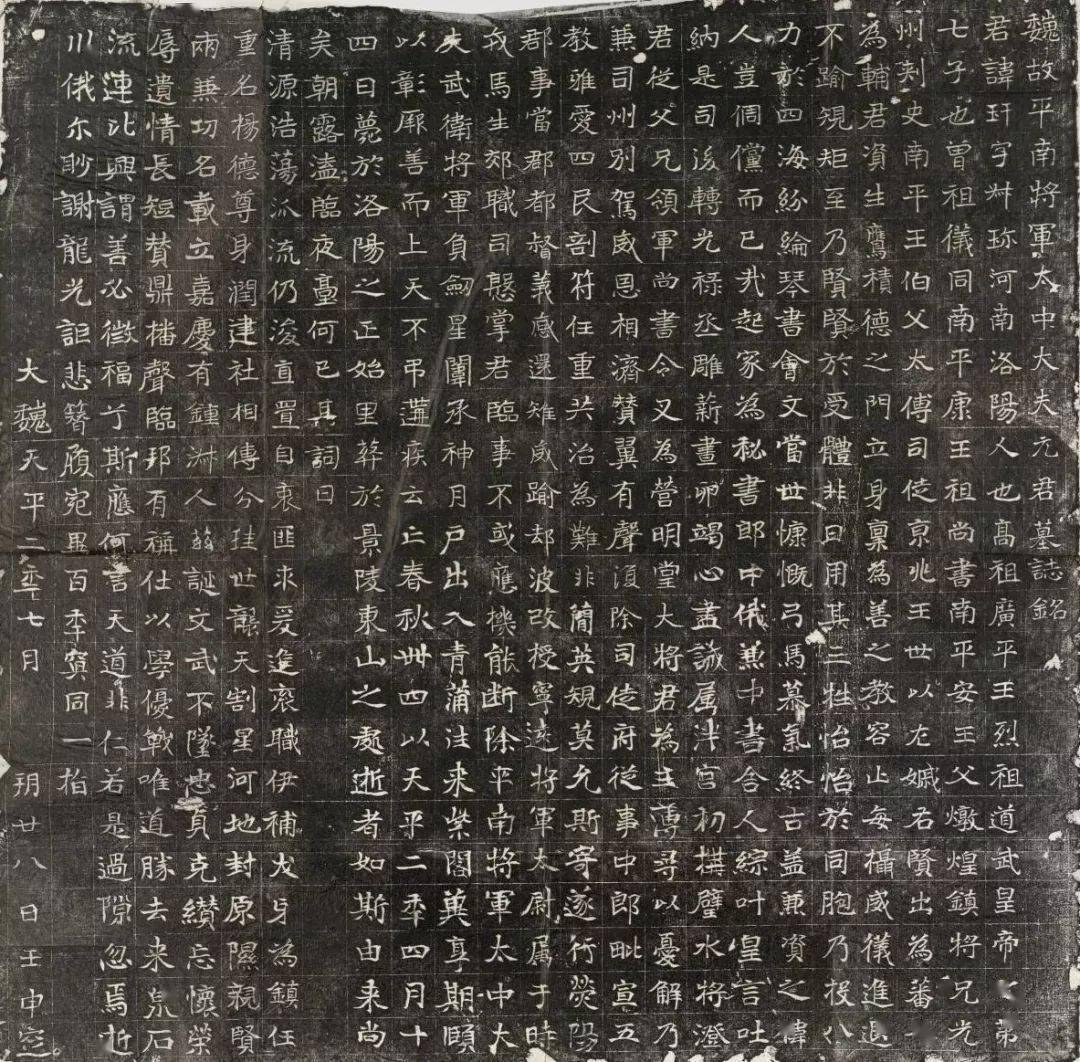 魏故平南將軍太中大夫元君墓誌銘
君諱玕字叔珍河南洛陽人也高祖廣平王烈祖道武皇帝之第
七子也曾祖儀同南平康王祖尚書南平安王父燉煌鎮將兄光
州刾史南平王伯父太傅司徒京兆王世以左戚名賢出為蕃
為輔君資生鷹積德之門立身稟為善之教容止每攝威儀進退
不踰規矩至乃賢賢於受體非日用其二牲怡怡於同胞乃授八
力於四海紛綸琴書會文當世慷慨弓馬慕氣終古盖兼資之偉
人豈倜儻而已㢤起家為秘書郎中俄兼中書舍人綜叶皇言吐
納是司後轉光祿丞雕薪畫卵竭心盡誠属泮宮初搆璧水將澄
君從父兄領軍尚書令叉為營明堂大將君為主薄尋以憂解乃
兼司州別駕威恩相濟贊翼有聲湏除司徒府從事中郎毗宣五
教雅愛四民剖符任重共治為難非簡英規莫允斯寄遂行滎陽
郡事當郡都督義感還雉威踰却波改授寧遠將軍太尉属于時
戎馬生郊職司慇掌君臨事不或應機能断除平南將軍太中大
夫武衛將軍負劒星闈承神月戶出入青蒲往来紫閣兾享期頤
以彰厥善而上天不弔遘疾云亡春秋卌四以天平二年四月十
四日薨於洛陽之正始里葬於景陵東山之處逝者如斯由来尚
矣朝露溘臨夜臺何已其詞曰
清源浩蕩派流仍浚直置自衷匪求爰進衮職伊補戎身為鎮任
重名楊德尊身潤建社相傳分珪世襲天割星河地封原隰親賢
兩兼功名載立嘉慶有鍾淋人茲誕文武不墜忠貞克纘忘懷榮
辱遺情長短贊鼎播聲臨邦有稱仕以學優戰唯道勝去来泉石
流連比興謂善必徵福亍斯應何言天道非仁若是過隙忽焉逝
川俄尒眇謝龍光詎悲簪履宛畢百年冥同一指
大魏天平二年七月玥廿八日壬申窆